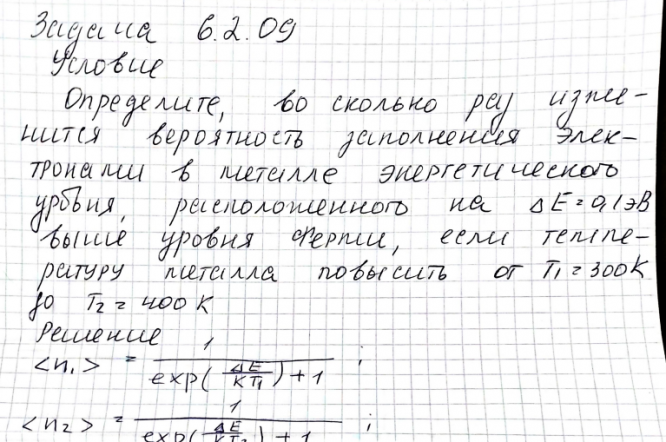 Задача 6.2.09
Условие
Определите, во сколько раз изме-
нится вероятность заполнения элек-
тронами в металле энергетического
уровня, расположенного на ΔE = 0,1 эВ
выше уровня Ферми, если темпе-
ратуру металла повысить от T₁ = 300K
до T₂ = 400 K
Решение
<n₁> = 1 / (exp(ΔE / KT₁) + 1) ;
<n₂> = 1 / (exp(ΔE / KT₂) + 1) ;